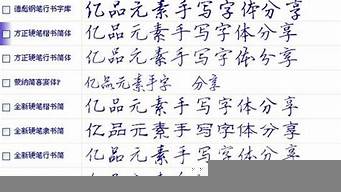 德彪钢笔行书字库 亿品元素手写字体分享
方正硬笔行书简 亿品元素手写字体分享
方正硬笔行书简 亿品元素手写字体分享
亿品元素手字 分享
全新硬笔楷书简 亿品元素手写字体分享
全新硬笔隶书简 亿品元素手写字体分享
全新硬笔行书简 亿品元素手写字体分享